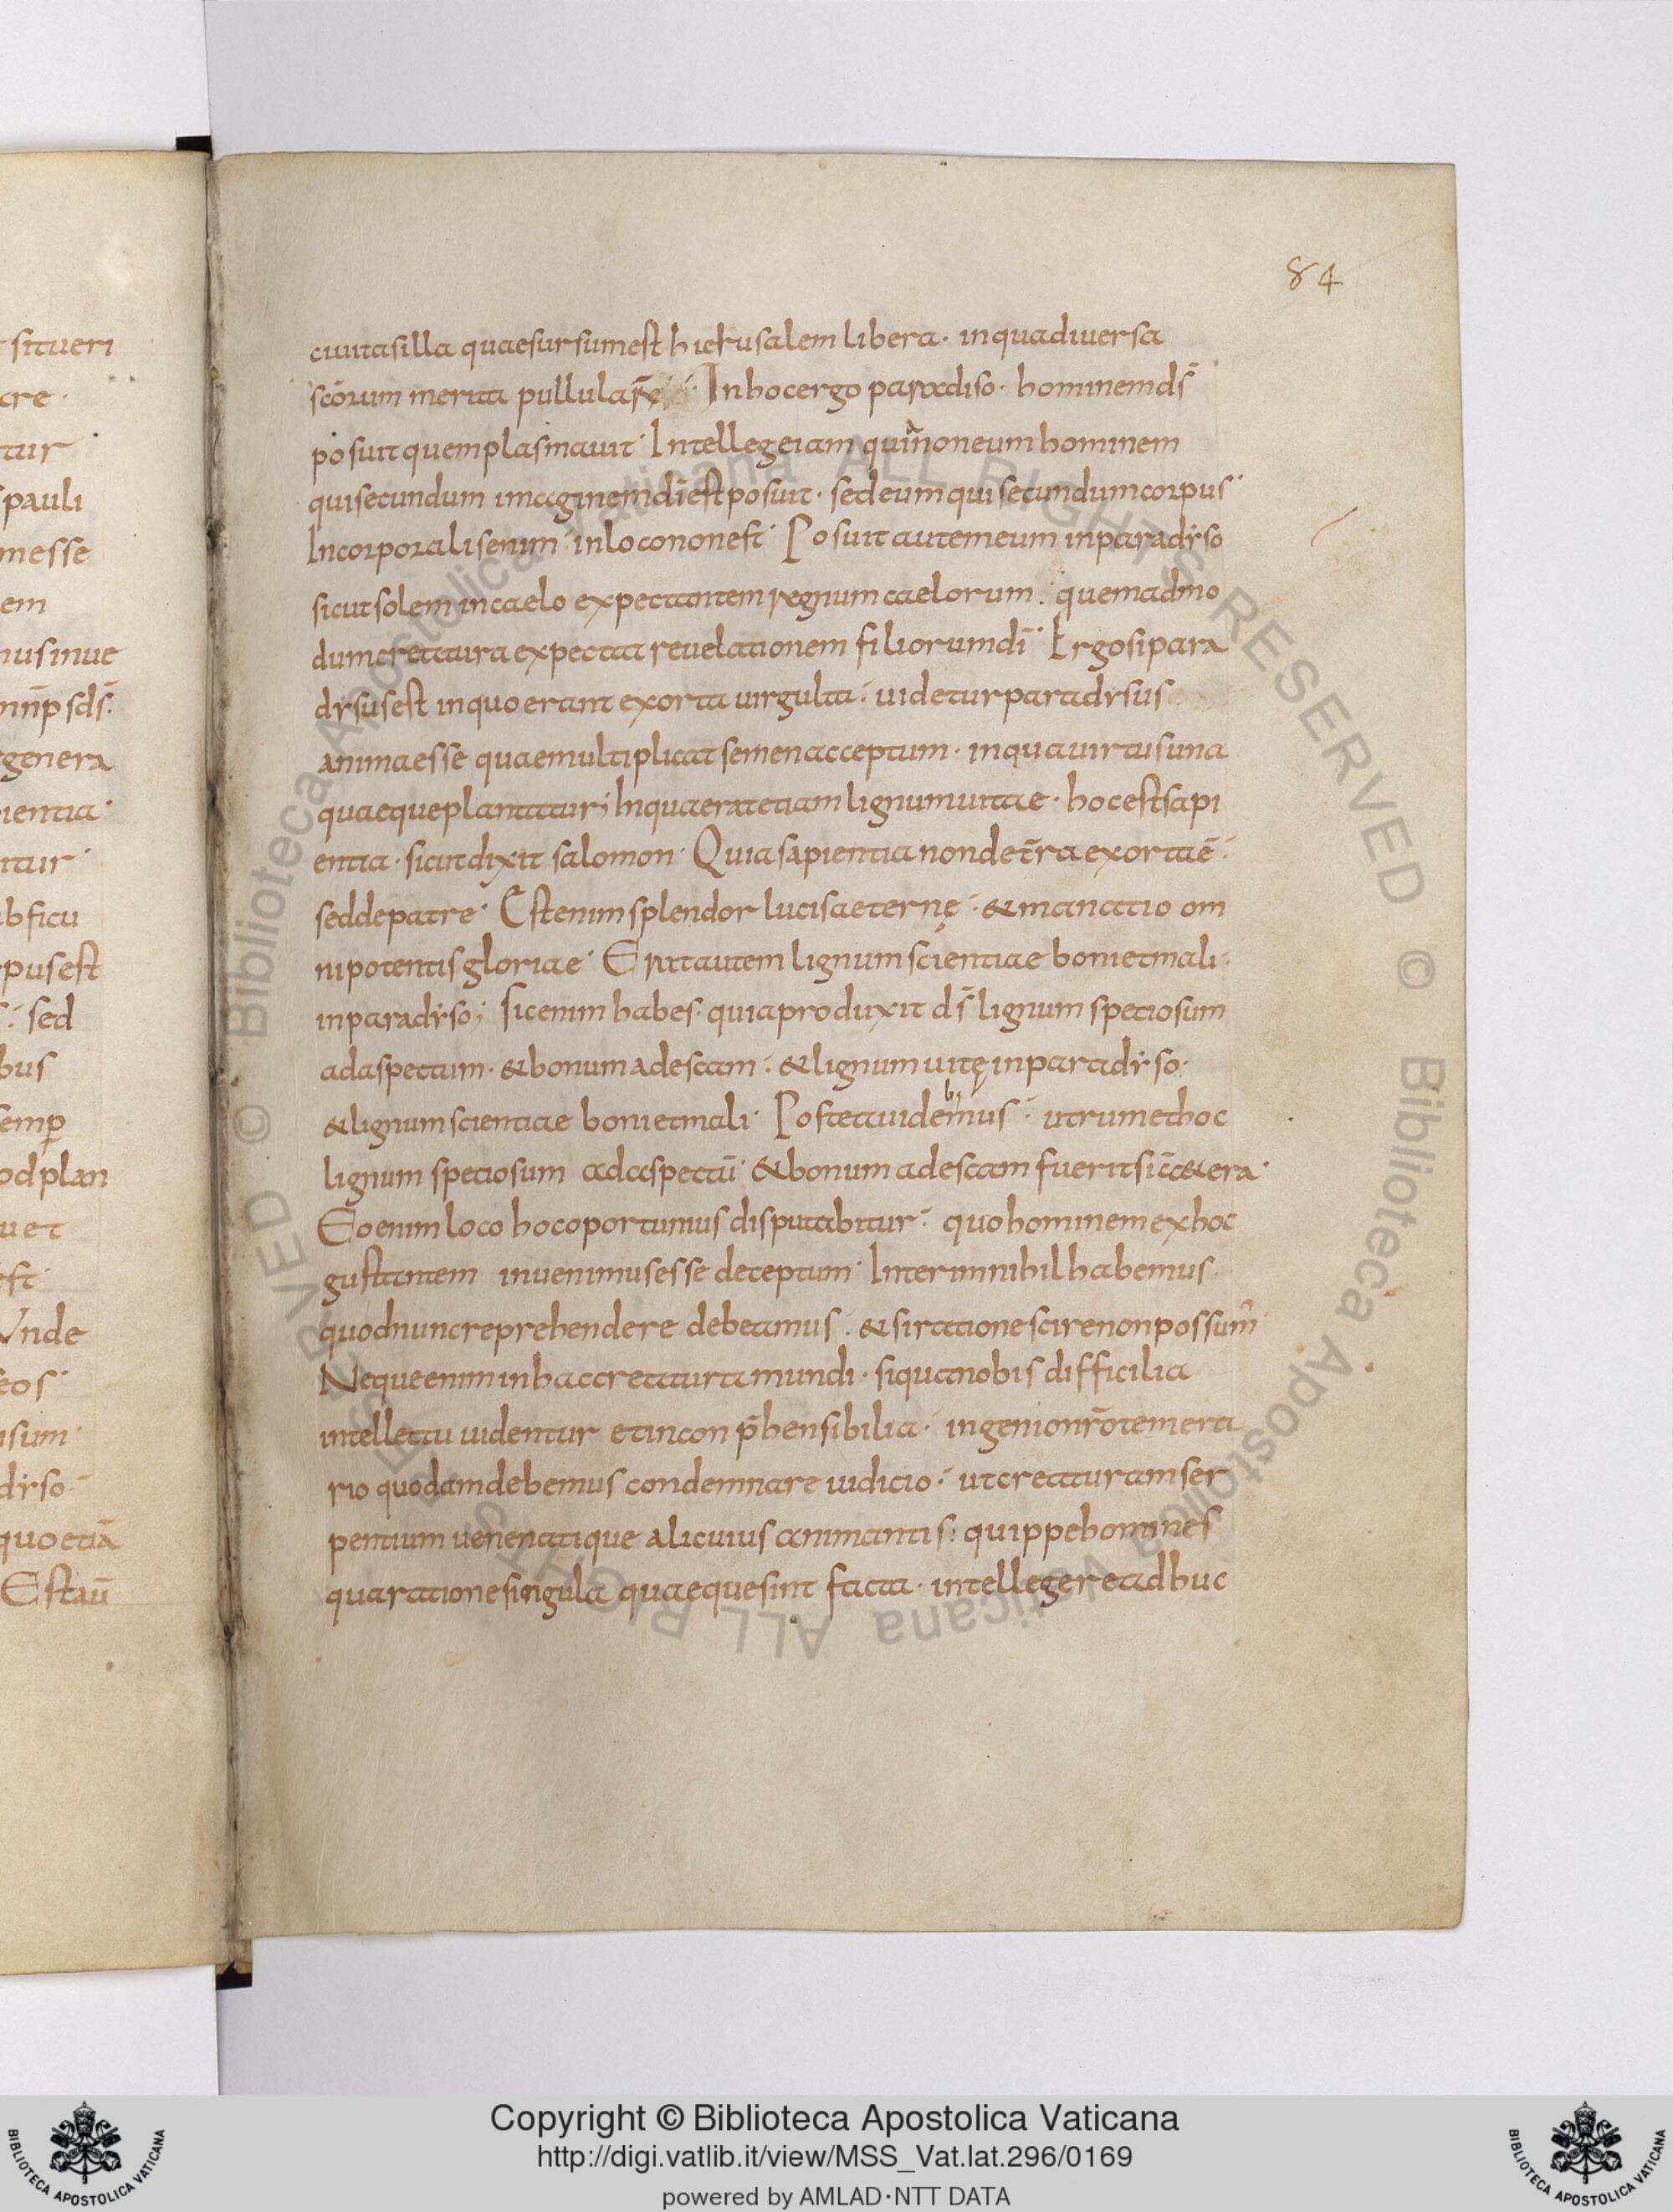 84
ciuitas illa quae sursum est hierusalem libera· in qua diuersa
scōrum merita pullular̄e· In hoc ergo paradiso· hominem ds̄
posuit quem plasmauit· Intellege iam quia non eum hominem
qui secundum imaginem dī est posuit· sed eum qui secundum corpus·
Incorporalis enim· in loco non est· Posuit autem eum in paradẏso
sicut solem in caelo expectantem regnum caelorum· quemadmo
dum creatura expectat reuelationem filiorum dī· Ergo si para
dẏsus est in quo erant exorta uirgulta· uidetur paradẏsus
anima esse quae multiplicat semen acceptum· in qua uirtus una
quaeque plantatur; In qua erat etiam lignum uitae· hoc est sapi
entia· sicut dixit salomon· Quia sapientia non de t̄ra exorta ē·
sed de patre· Est enim splendor lucis aeternę· & manatio om
nipotentis gloriae· Erat autem lignum scientiae boni et mali·
in paradẏso; Sic enim habes· quia produxit ds̄ lignum speciosum
ad aspectum· & bonum ad escam· & lignum uitę in paradẏso·
& lignum scientiae boni et mali· Postea uidebimus· utrum et hoc
lignum speciosum ad aspectū· & bonum ad escam fuerit sic̄ cetera·
Eo enim loco hoc oportunius disputabitur· quo hominem ex hoc
gustantem inuenimus esse deceptum· Interim nihil habemus
quod nunc reprehendere debeamus· & si ratione scire non possum᾽
Neque enim in hac creatura mundi· si qua nobis difficilia
intellectu uidentur et incon p̄hensibilia· ingenio nr̄o temera
rio quodam debemus condemnare iudicio· ut creaturam ser
pentium uenenatique alicuius animantis· quippe homines
qua ratione singula quaeque sint facta· intellegere adhuc
sit ueri
pauli
m esse
em
nus inue
genera
ientia·
b ficu
pus est
sed
bus
semꝑ
od plan
uet
est·
Vnde
eos·
dẏso·
quo etiā
Est aū
© Biblioteca Apostolica Vaticana ALL RIGHTS RESERVED © Biblioteca Apostolica Vaticana ALL RIGHTS RESERVED
Copyright © Biblioteca Apostolica Vaticana
http://digi.vatlib.it/view/MSS_Vat.lat.296/0169
powered by AMLAD·NTT DATA
BIBLIOTECA APOSTOLICA VATICANA
BIBLIOTECA APOSTOLICA VATICANA